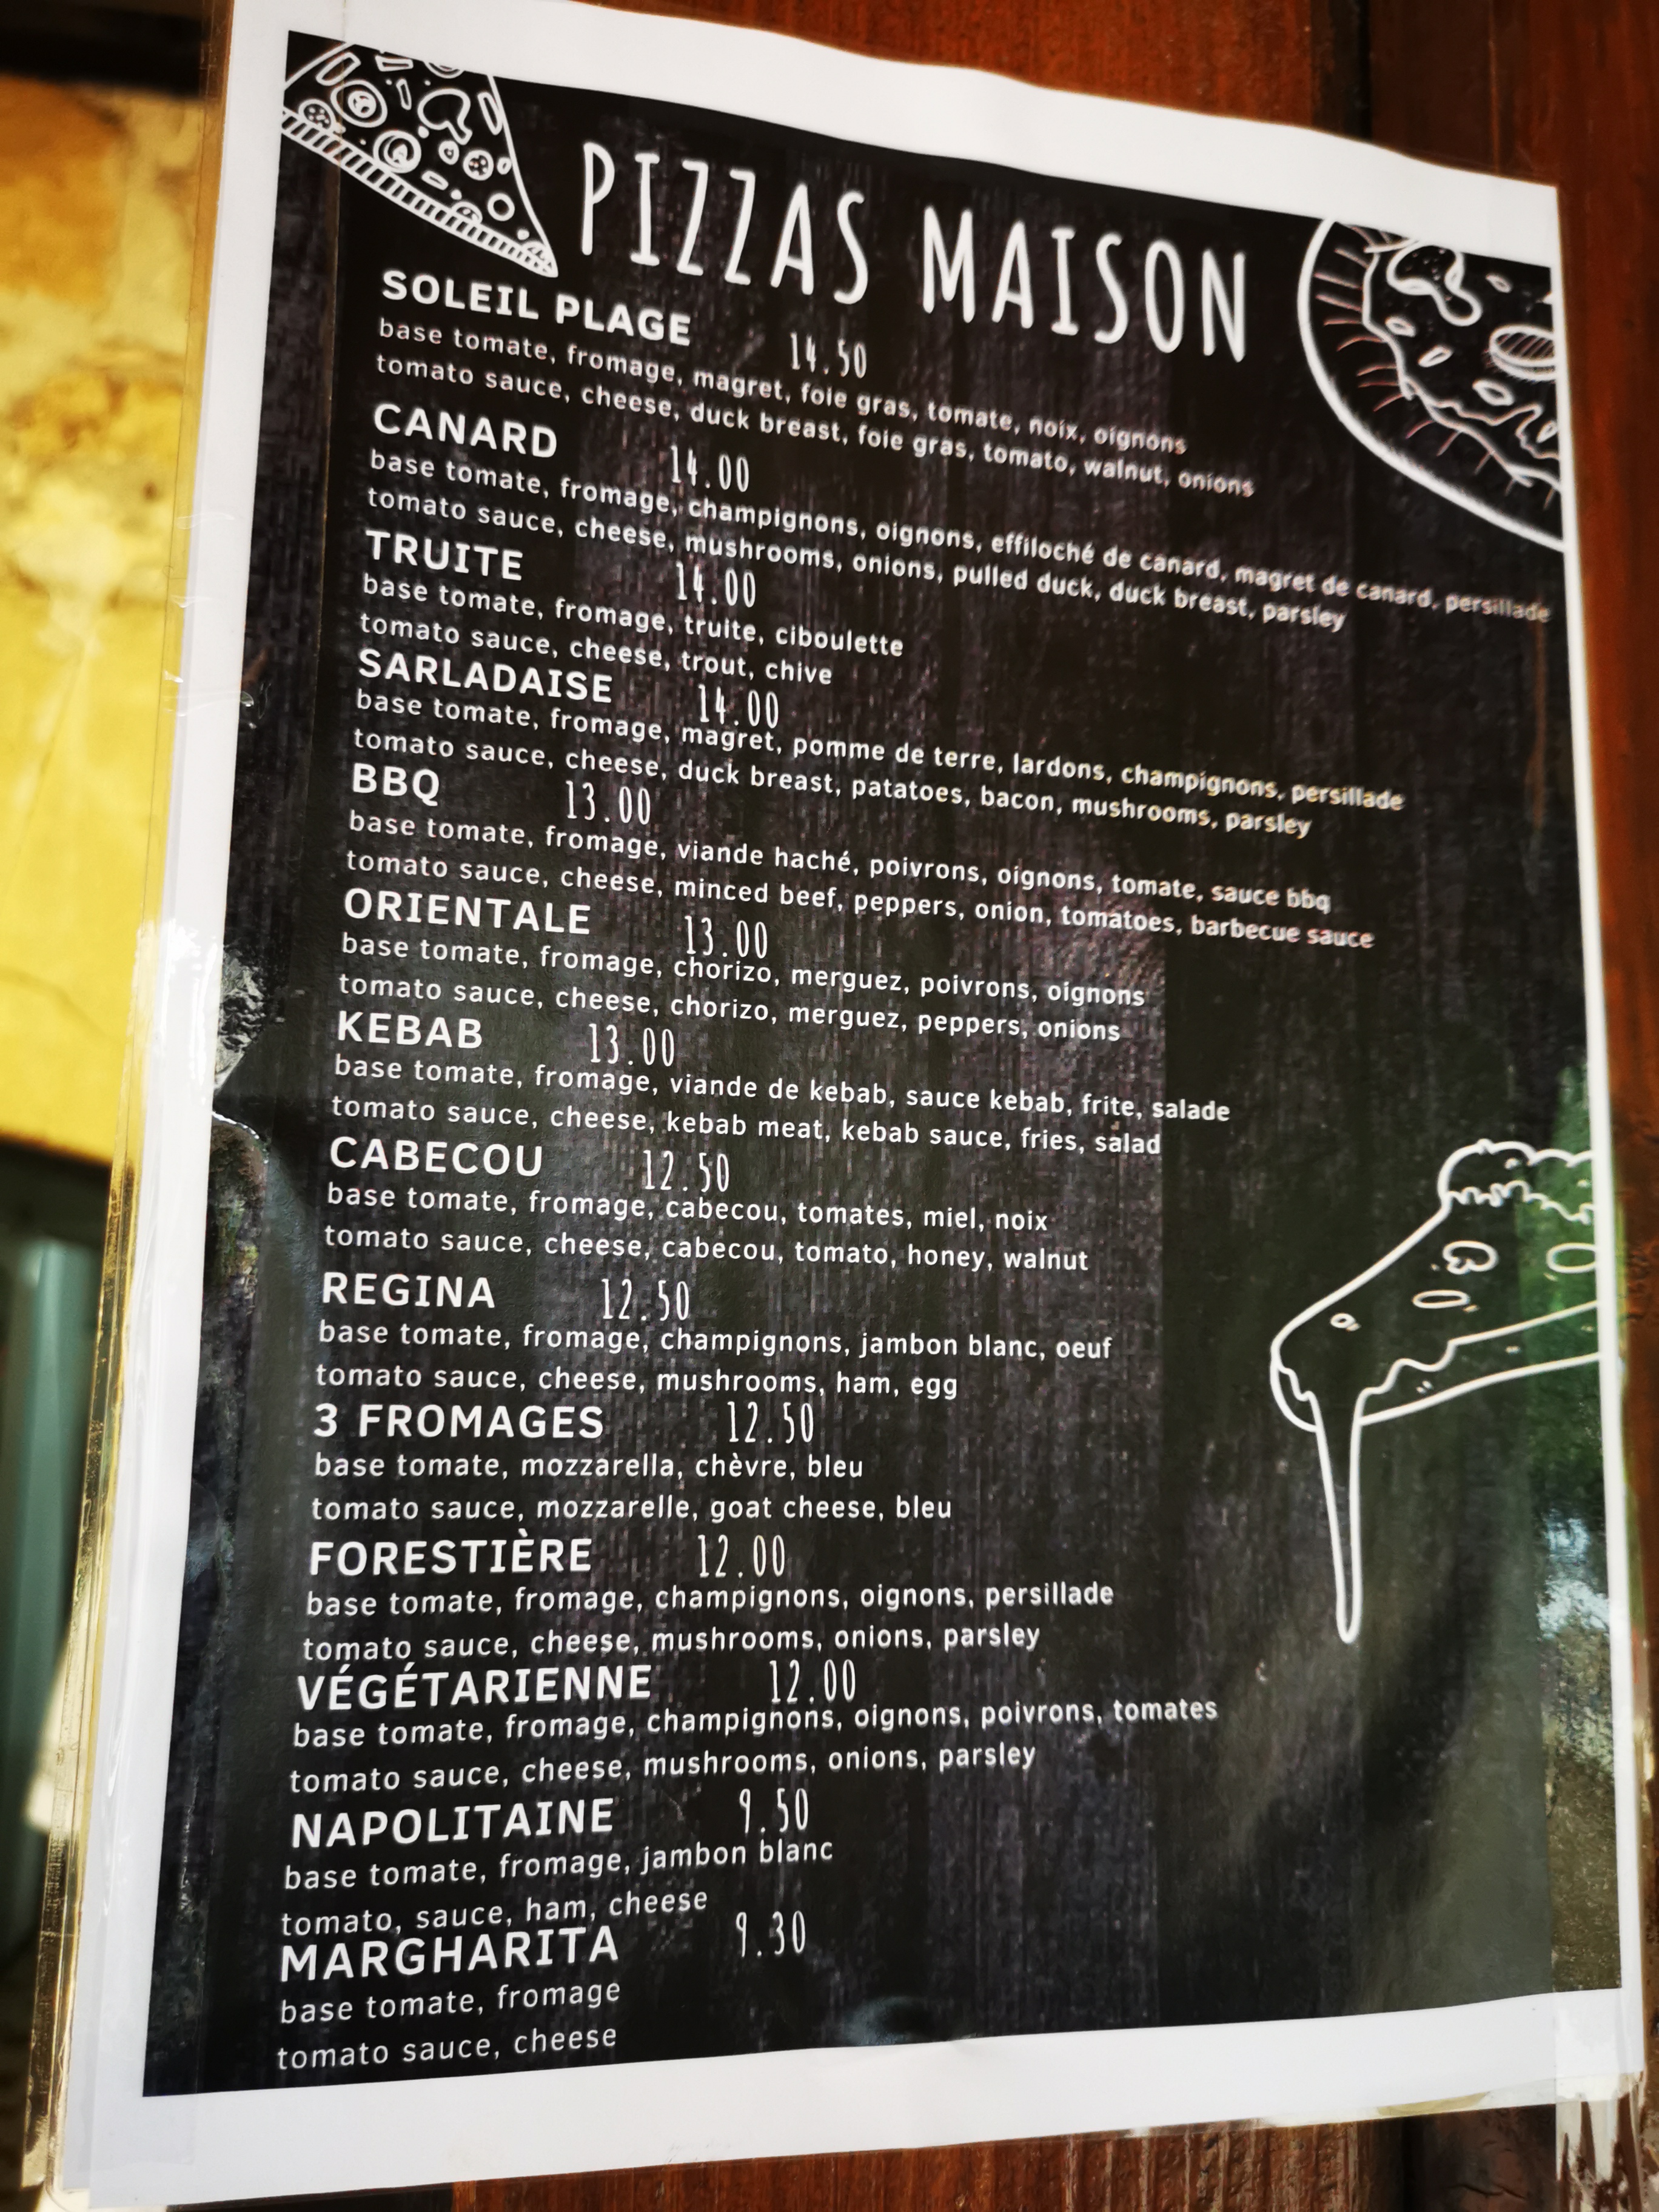 PIZZAS MAISON
SOLEIL PLAGE 14.50
base tomate, fromage, magret, foie gras, tomate, noix, oignons
tomato sauce, cheese, duck breast, foie gras, tomato, walnut, onions
CANARD 14.00
base tomate, fromage, champignons, oignons, effiloché de canard, magret de canard, persillade
tomato sauce, cheese, mushrooms, onions, pulled duck, duck breast, parsley
TRUITE 14.00
base tomate, fromage, truite, ciboulette
tomato sauce, cheese, trout, chive
SARLADAISE 14.00
base tomate, fromage, magret, pomme de terre, lardons, champignons, persillade
tomato sauce, cheese, duck breast, patatoes, bacon, mushrooms, parsley
BBQ 13.00
base tomate, fromage, viande haché, poivrons, oignons, tomate, sauce bbq
tomato sauce, cheese, minced beef, peppers, onion, tomatoes, barbecue sauce
ORIENTALE 13.00
base tomate, fromage, chorizo, merguez, poivrons, oignons
tomato sauce, cheese, chorizo, merguez, peppers, onions
KEBAB 13.00
base tomate, fromage, viande de kebab, sauce kebab, frite, salade
tomato sauce, cheese, kebab meat, kebab sauce, fries, salad
CABECOU 12.50
base tomate, fromage, cabecou, tomates, miel, noix
tomato sauce, cheese, cabecou, tomato, honey, walnut
REGINA 12.50
base tomate, fromage, champignons, jambon blanc, oeuf
tomato sauce, cheese, mushrooms, ham, egg
3 FROMAGES 12.50
base tomate, mozzarella, chèvre, bleu
tomato sauce, mozzarelle, goat cheese, bleu
FORESTIÈRE 12.00
base tomate, fromage, champignons, oignons, persillade
tomato sauce, cheese, mushrooms, onions, parsley
VÉGÉTARIENNE 12.00
base tomate, fromage, champignons, oignons, poivrons, tomates
tomato sauce, cheese, mushrooms, onions, parsley
NAPOLITAINE 9.50
base tomate, fromage, jambon blanc
tomato, sauce, ham, cheese
MARGHARITA 9.30
base tomate, fromage
tomato sauce, cheese